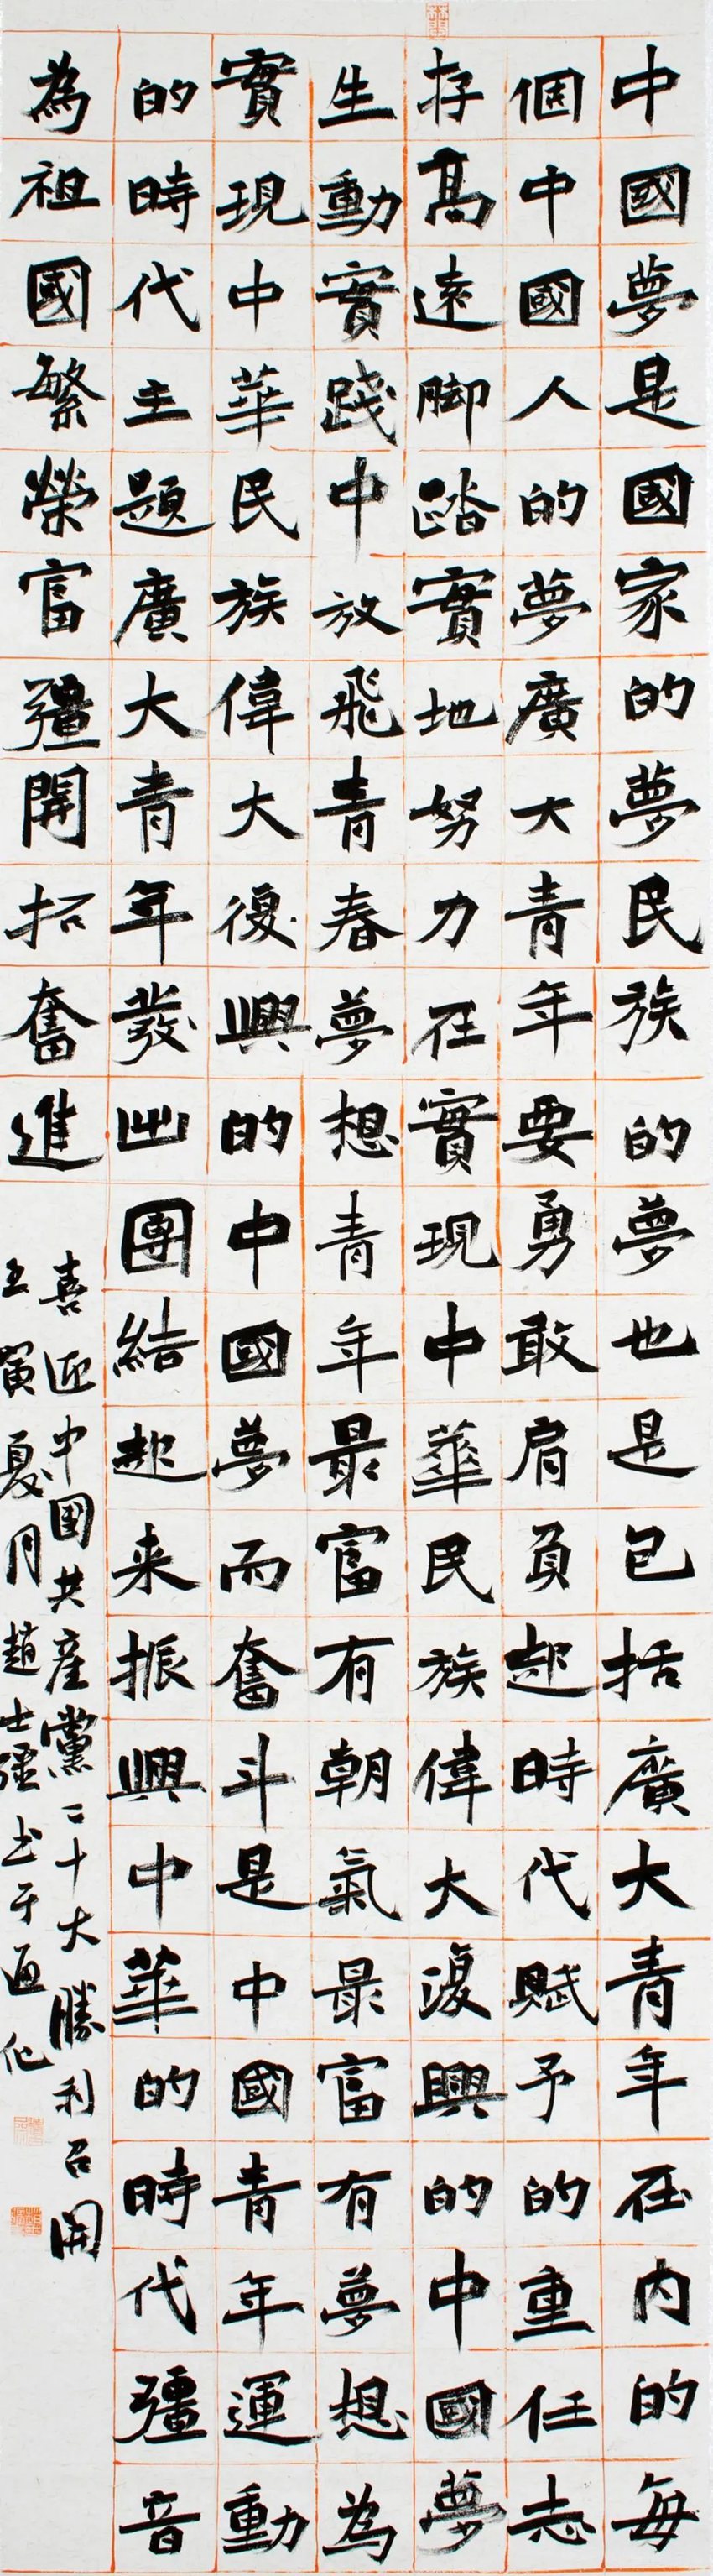 中國夢是國家的夢民族的夢也是包括廣大青年在内的每
個中國人的夢廣大青年要勇敢肩負起時代賦予的重任志
存高遠脚踏實地努力在實現中華民族偉大復興的中國夢
生動實踐中放飛青春夢想青年最富有朝氣最富有夢想為
實現中華民族偉大復興的中國夢而奮斗是中國青年運動
的時代主題廣大青年發出團結起来振興中華的時代彊音
為祖國繁榮富彊開拓奮進
喜迎中國共產黨二十大勝利召開
壬寅夏月趙士彊書于通化